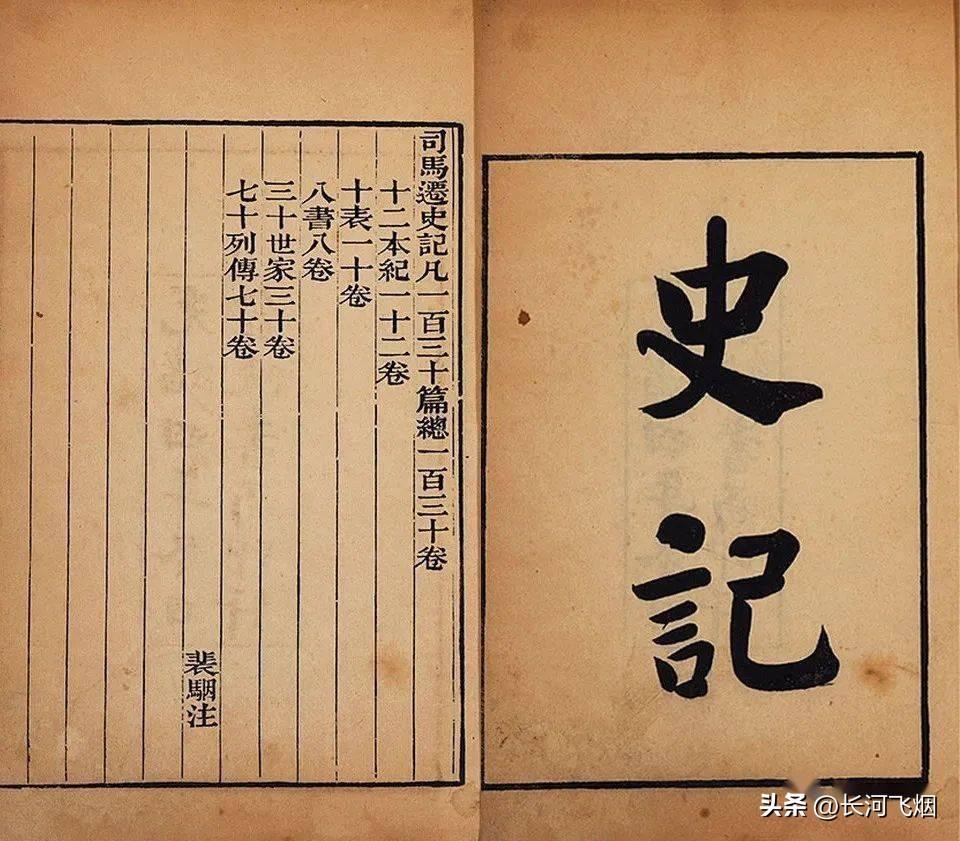 史記
司馬遷史記凡一百三十篇總一百三十卷
十二本紀一十二卷
十表一十卷
八書八卷
三十世家三十卷
七十列傳七十卷
裴駰注
头条 @长河飞烟